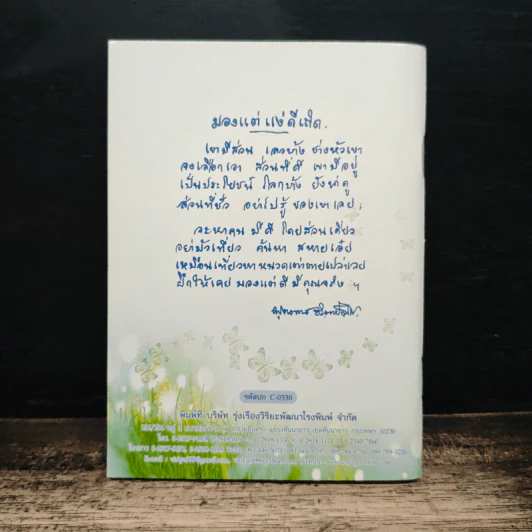 มองแต่แง่ดีเถิด.
เขามีส่วน เลวบ้าง ช่างหัวเขา
จงเลือกเอา ส่วนที่ดี เขามีอยู่
เป็นประโยชน์ โลกบ้าง ยังน่าดู
ส่วนที่ชั่ว อย่าไปรู้ ของเขาเลย ;
จะหาคน มีดี โดยส่วนเดียว
อย่ามัวเที่ยว ค้นหา สหายเอ๋ย
เหมือนเที่ยวหา หนวดเต่า ตายเปล่าเลย
ฝึกให้เคย มองแต่ดี มีคุณจริง ฯ
พุทธทาส อินทปัญโญ.
รหัสปก C-0338
พิมพ์ที่ บริษัท รุ่งเรืองวิริยะพัฒนาโรงพิมพ์ จำกัด